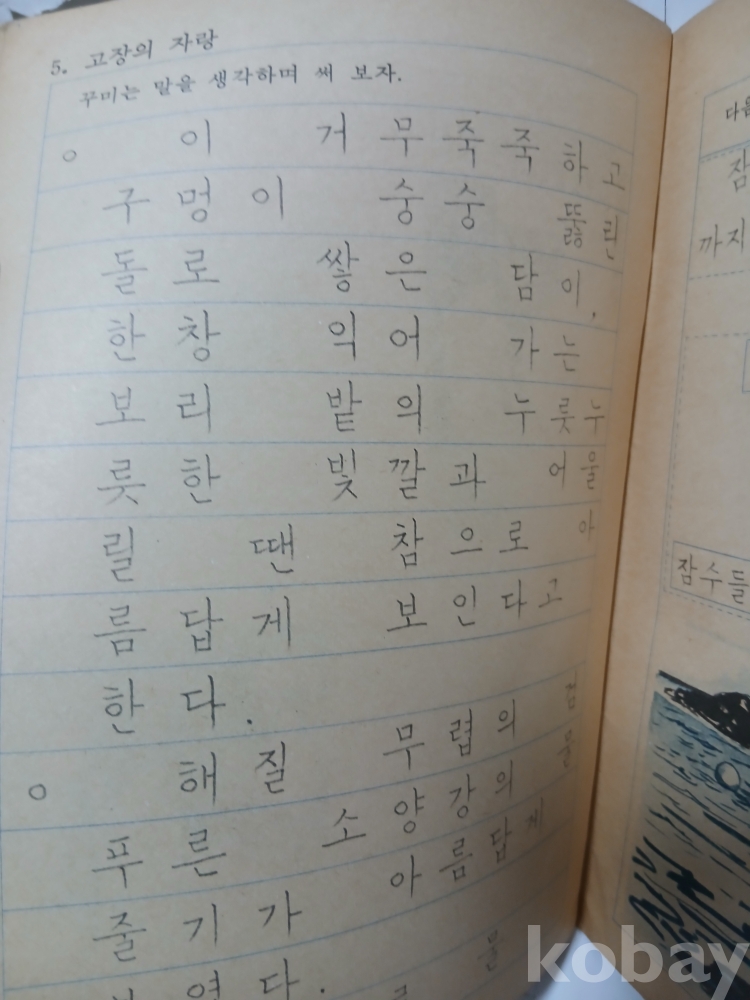 5. 고장의 자랑
꾸미는 말을 생각하며 써 보자.
○ 이 거무죽죽하고
구멍이 숭숭 뚫린
돌로 쌓은 담이,
한창 익어 가는
보리 밭의 누릇누
릇한 빛깔과 어울
릴 땐 참으로 아
름답게 보인다고
한다.
○ 해질 무렵의 검
푸른 소양강의 물
줄기가 아름답게
였다.
다음
잠
까지
잠수들
kobay